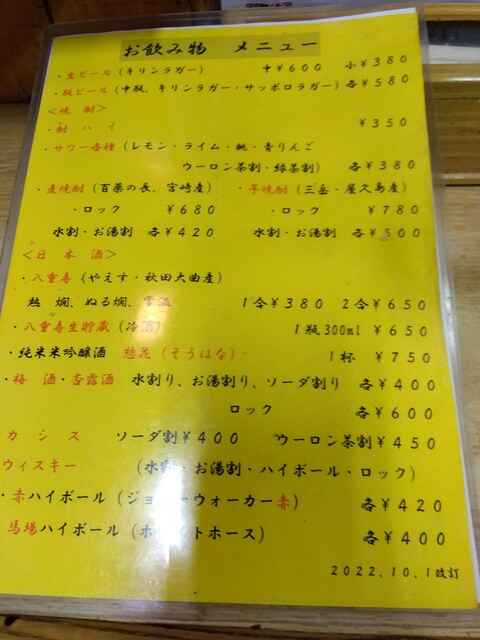 お飲み物　メニュー
・生ビール (キリンラガー)　中￥600　小￥380
・瓶ビール (中瓶、キリンラガー・サッポロラガー) 各￥580
＜焼 酎＞
・酎 ハ イ　￥350
・サワー各種 (レモン・ライム・桃・青りんご
ウーロン茶割・緑茶割)　各￥380
・麦焼酎 (百薬の長、宮崎産)　・芋焼酎 (三岳・屋久島産)
・ロック　￥680　・ロック　￥780
水割・お湯割　各￥420　水割・お湯割　各￥500
＜日 本 酒＞
・八重寿 (やえす・秋田大曲産)
熱 燗、ぬる燗、常温　1合￥380　2合￥650
・八重寿生貯蔵 (冷酒)　1瓶300ml ￥650
・純米米吟醸酒　惣花 (そうはな)　1杯　￥750
・梅 酒・杏露酒　水割り、お湯割り、ソーダ割り　各￥400
ロック　各￥600
カ シ ス　ソーダ割￥400　ウーロン茶割￥450
ウィスキー　(水割・お湯割・ハイボール・ロック)
・赤ハイボール (ジョニーウォーカー赤)　各￥420
馬場ハイボール (ホワイトホース)　各￥400
2022.10.1改訂